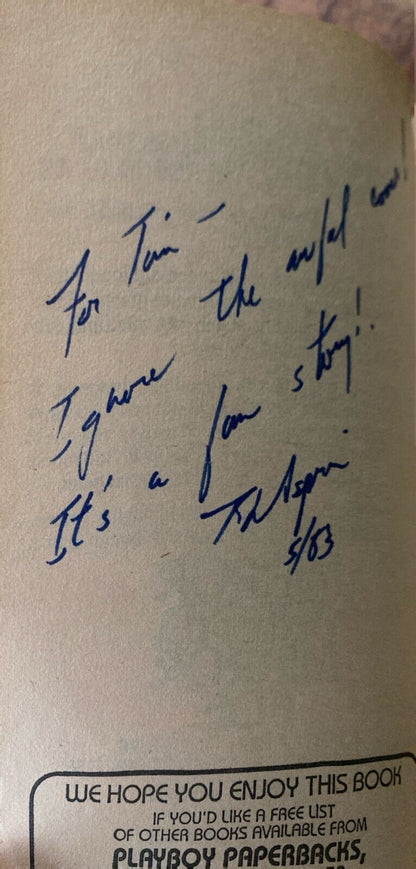 For Tim –
Ignore the awful cover!
It's a fun story!
R L Asprin
5/83
WE HOPE YOU ENJOY THIS BOOK
IF YOU'D LIKE A FREE LIST
OF OTHER BOOKS AVAILABLE FROM
PLAYBOY PAPERBACKS,